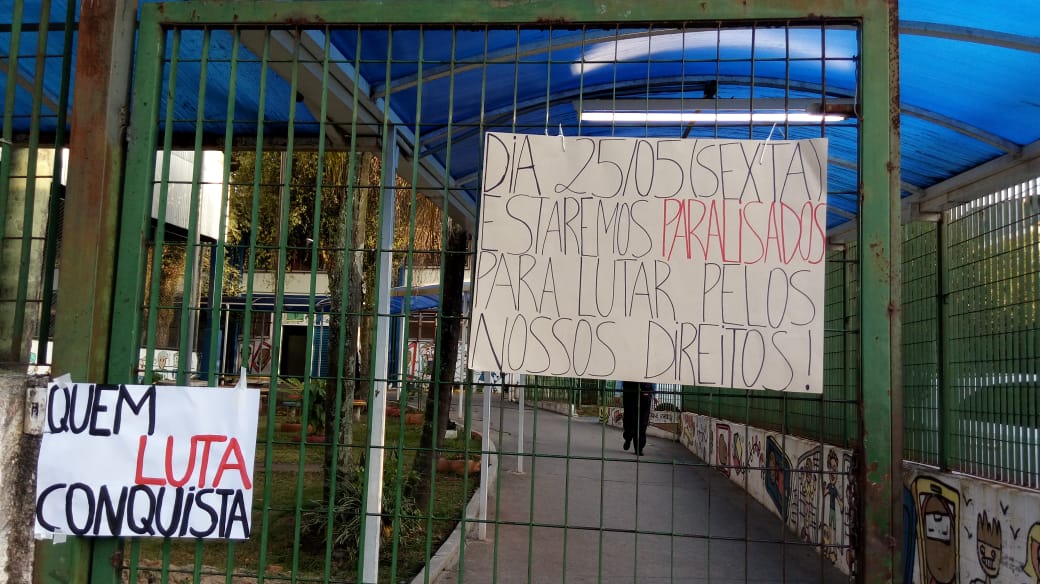 DiA 25/05 (SEXTA)
ESTAREMOS PARALiSADOS
PARA LUTAR PELOS
NOSSOS DiREiTOS!
QUEM
LUTA
CONQUiSTA